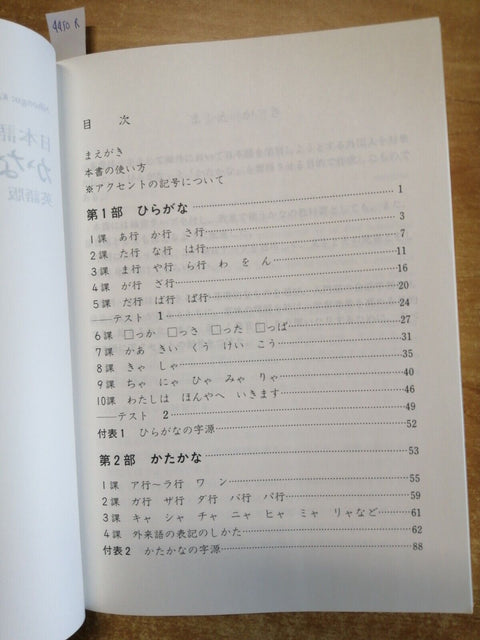 4410 R
Nihongo: K
日本語
かな
英語版
目　次
まえがき
本書の使い方
※アクセントの記号について
第1部　ひらがな……1
1課　あ行　か行　さ行……3
2課　た行　な行　は行……7
3課　ま行　や行　ら行　わ　を　ん……11
4課　が行　ざ行……16
5課　だ行　ば行　ぱ行……20
――テスト　1……24
6課　□っか　□っさ　□った　□っぱ……27
7課　かあ　きい　くう　けい　こう……31
8課　きゃ　しゃ……35
9課　ちゃ　にゃ　ひゃ　みゃ　りゃ……40
10課　わたしは　ほんやへ　いきます……46
――テスト　2……49
付表1　ひらがなの字源……52
第2部　かたかな……53
1課　ア行～ラ行　ワ　ン……55
2課　ガ行　ザ行　ダ行　バ行　パ行……59
3課　キャ　シャ　チャ　ニャ　ヒャ　ミャ　リャなど……61
4課　外来語の表記のしかた……62
付表2　かたかなの字源……88